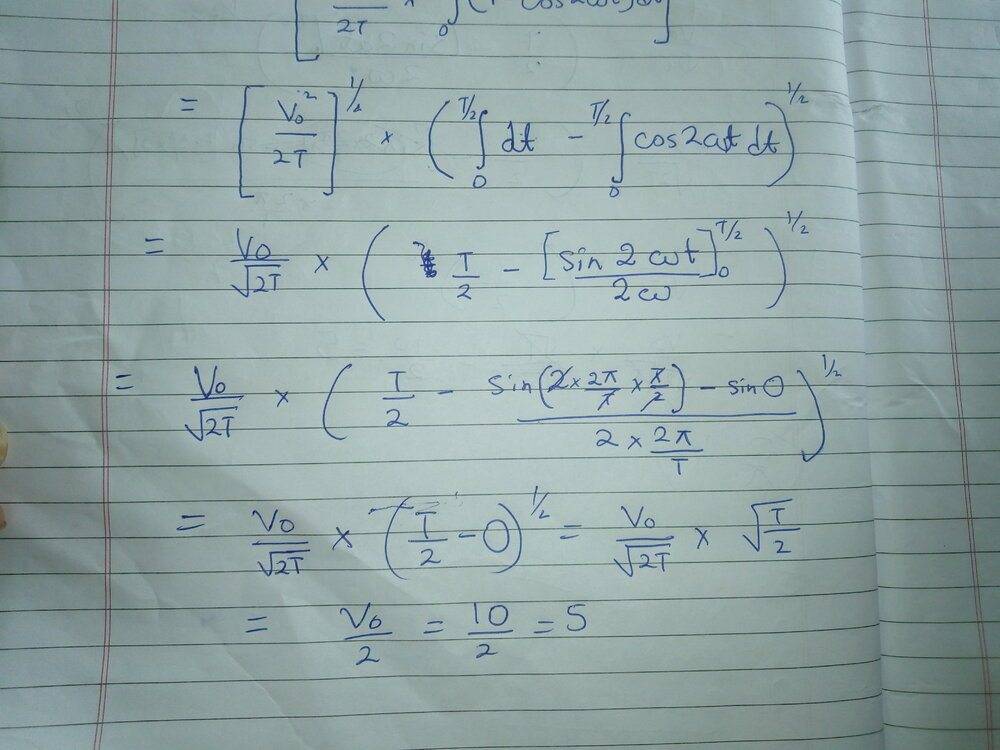 2T × ∫₀ (1 - cos2ωt)dt ]
= [ V₀² / 2T ]^1/2 × ( ∫₀^T/2 dt - ∫₀^T/2 cos2ωt dt )^1/2
= V₀ / √2T × ( T/2 - [sin 2ωt]₀^T/2 / 2ω )^1/2
= V₀ / √2T × ( T/2 - (sin(2 × 2π/T × T/2) - sin0) / (2 × 2π/T) )^1/2
= V₀ / √2T × ( T/2 - 0 )^1/2 = V₀ / √2T × √T/2
= V₀/2 = 10/2 = 5